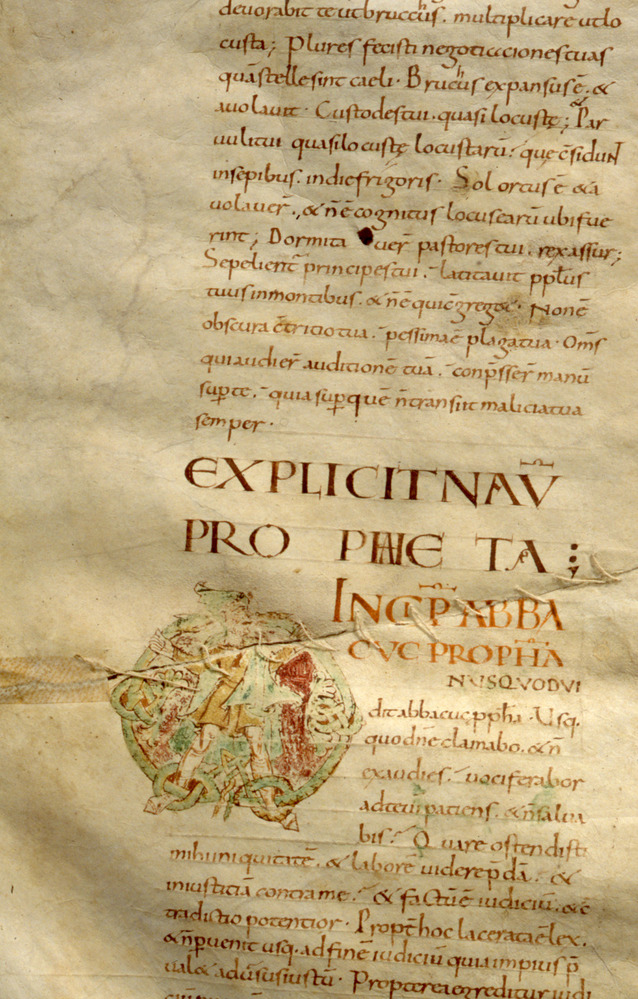 deuorabit te ut bruchus. multiplicare ut lo
custa; Plures fecisti negotiaciones tuas
quā stellę sint caeli. Bruchus expansus ē. &
auolauit. Custodes tui. quasi locustę; Par
uuli tui quasi locustę locustarū. que c̄sidunt
in sepibus. in die frigoris. Sol ortus ē & a
uolauer̄. & n̄ ē cognitus locus earū ubi fue
rint; Dormitauer̄ pastores tui. rex assur;
Sepelient̄ principes tui. latitauit pplus
tuus in montibus. & n̄ ē qui c̄greg&. Non ē
obscura c̄tritio tua. pessima ē plaga tua. Om̄s
qui audier̄ auditionē tuā. conp̄sser̄ manū
sup te. quia sup quē n̄ transiit malicia tua
semper.
EXPLICIT NAŪ
PROPHETA;
INCP̄ ABBA
CVC PROPH̄A
NUSQVODVI
dit abbacuc pph̄a. Usq.
quo dn̄e clamabo. & n̄
exaudies. uociferabor
ad te uim patiens. & n̄ salua
bis. Quare ostendisti
mihi iniquitatē. & laborē uidere p̄dā. &
iniusticiā contra me. & factū ē iudiciū. & c̄
tradictio potentior. Propt̄ hoc lacerata ē lex.
& n̄ puenit usq. ad finē iudiciū quia impius p̄
ual& aduersus iustū. Propterea egreditur iudi